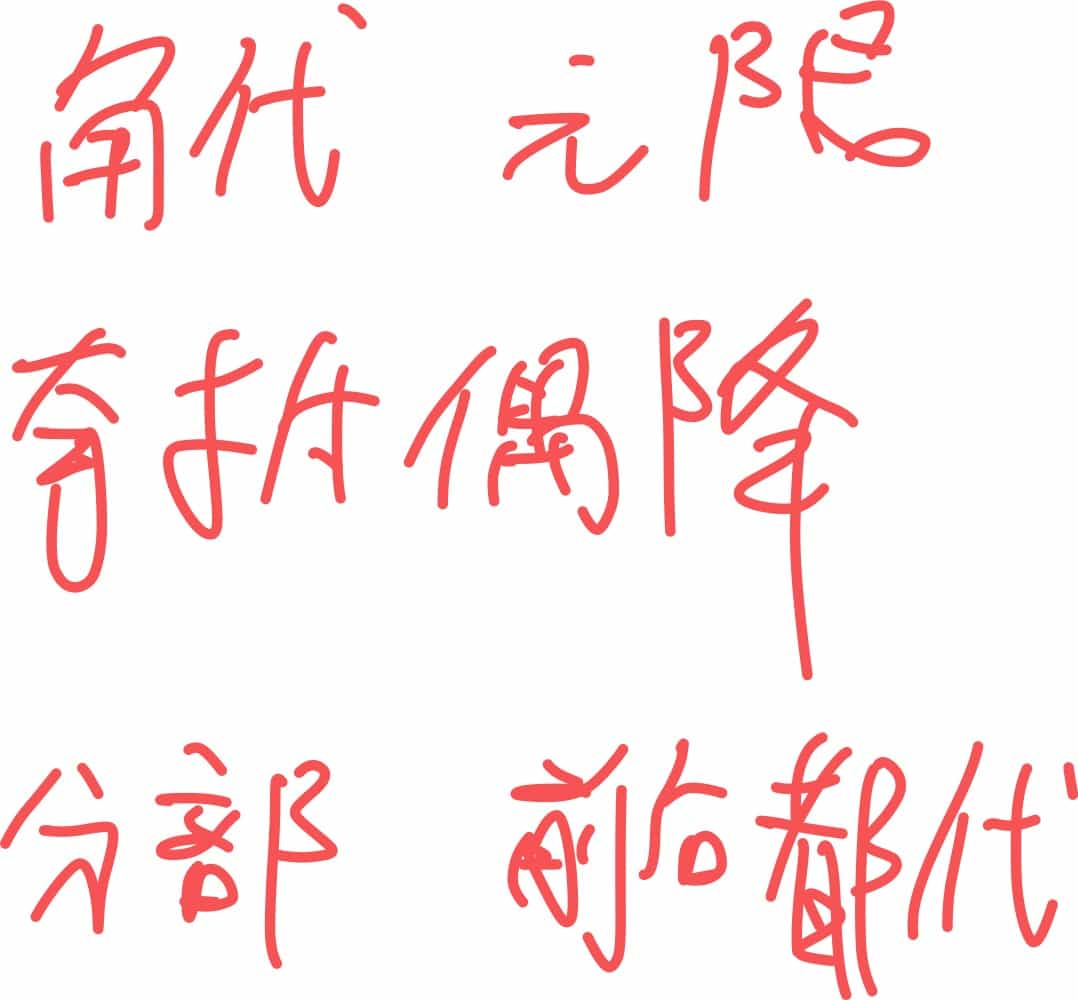 角代 元限
奇拆偶降
分部 前后都代